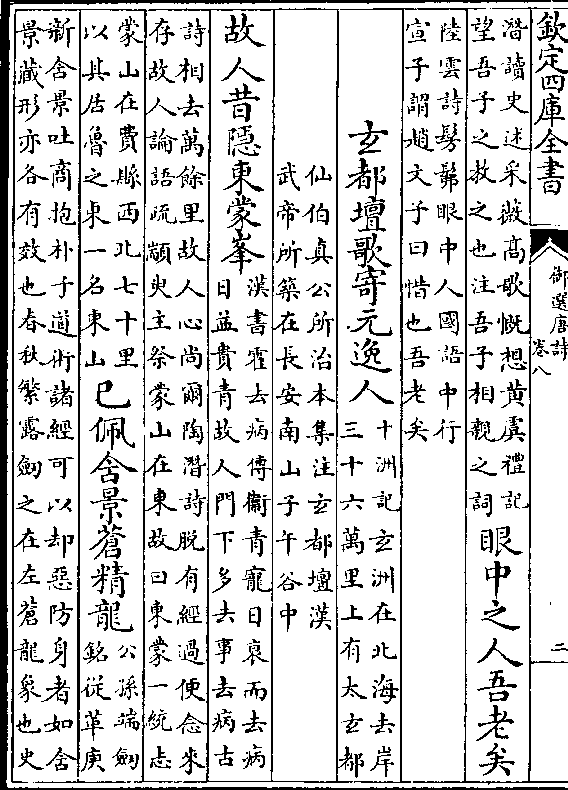 欽定四庫全書
御選唐詩
卷八
二
潛讀史述采薇高歌慨想黃虞禮記
望吾子之教之也注吾子相親之詞
眼中之人吾老矣
陸雲詩髣髴眼中人國語中行
宣子謂趙文子曰惜也吾老矣
玄都壇歌寄元逸人
十洲記玄洲在北海去岸
三十六萬里上有太玄都
仙伯真公所治本集注玄都壇漢
武帝所築在長安南山子午谷中
故人昔隱東蒙峯
漢書霍去病傳衞青寵日衰而去病
日益貴青故人門下多去事去病古
詩相去萬餘里故人心尚爾陶潛詩脫有經過便念來
存故人論語疏顓臾主祭蒙山在東故曰東蒙一統志
蒙山在費縣西北七十里
以其居魯之東一名東山
已佩含景蒼精龍
公孫端劒
銘從革庚
新含景吐商抱朴子道術諸經可以却惡防身者如含
景藏形亦各有效也春秋繁露劒之在左蒼龍象也史